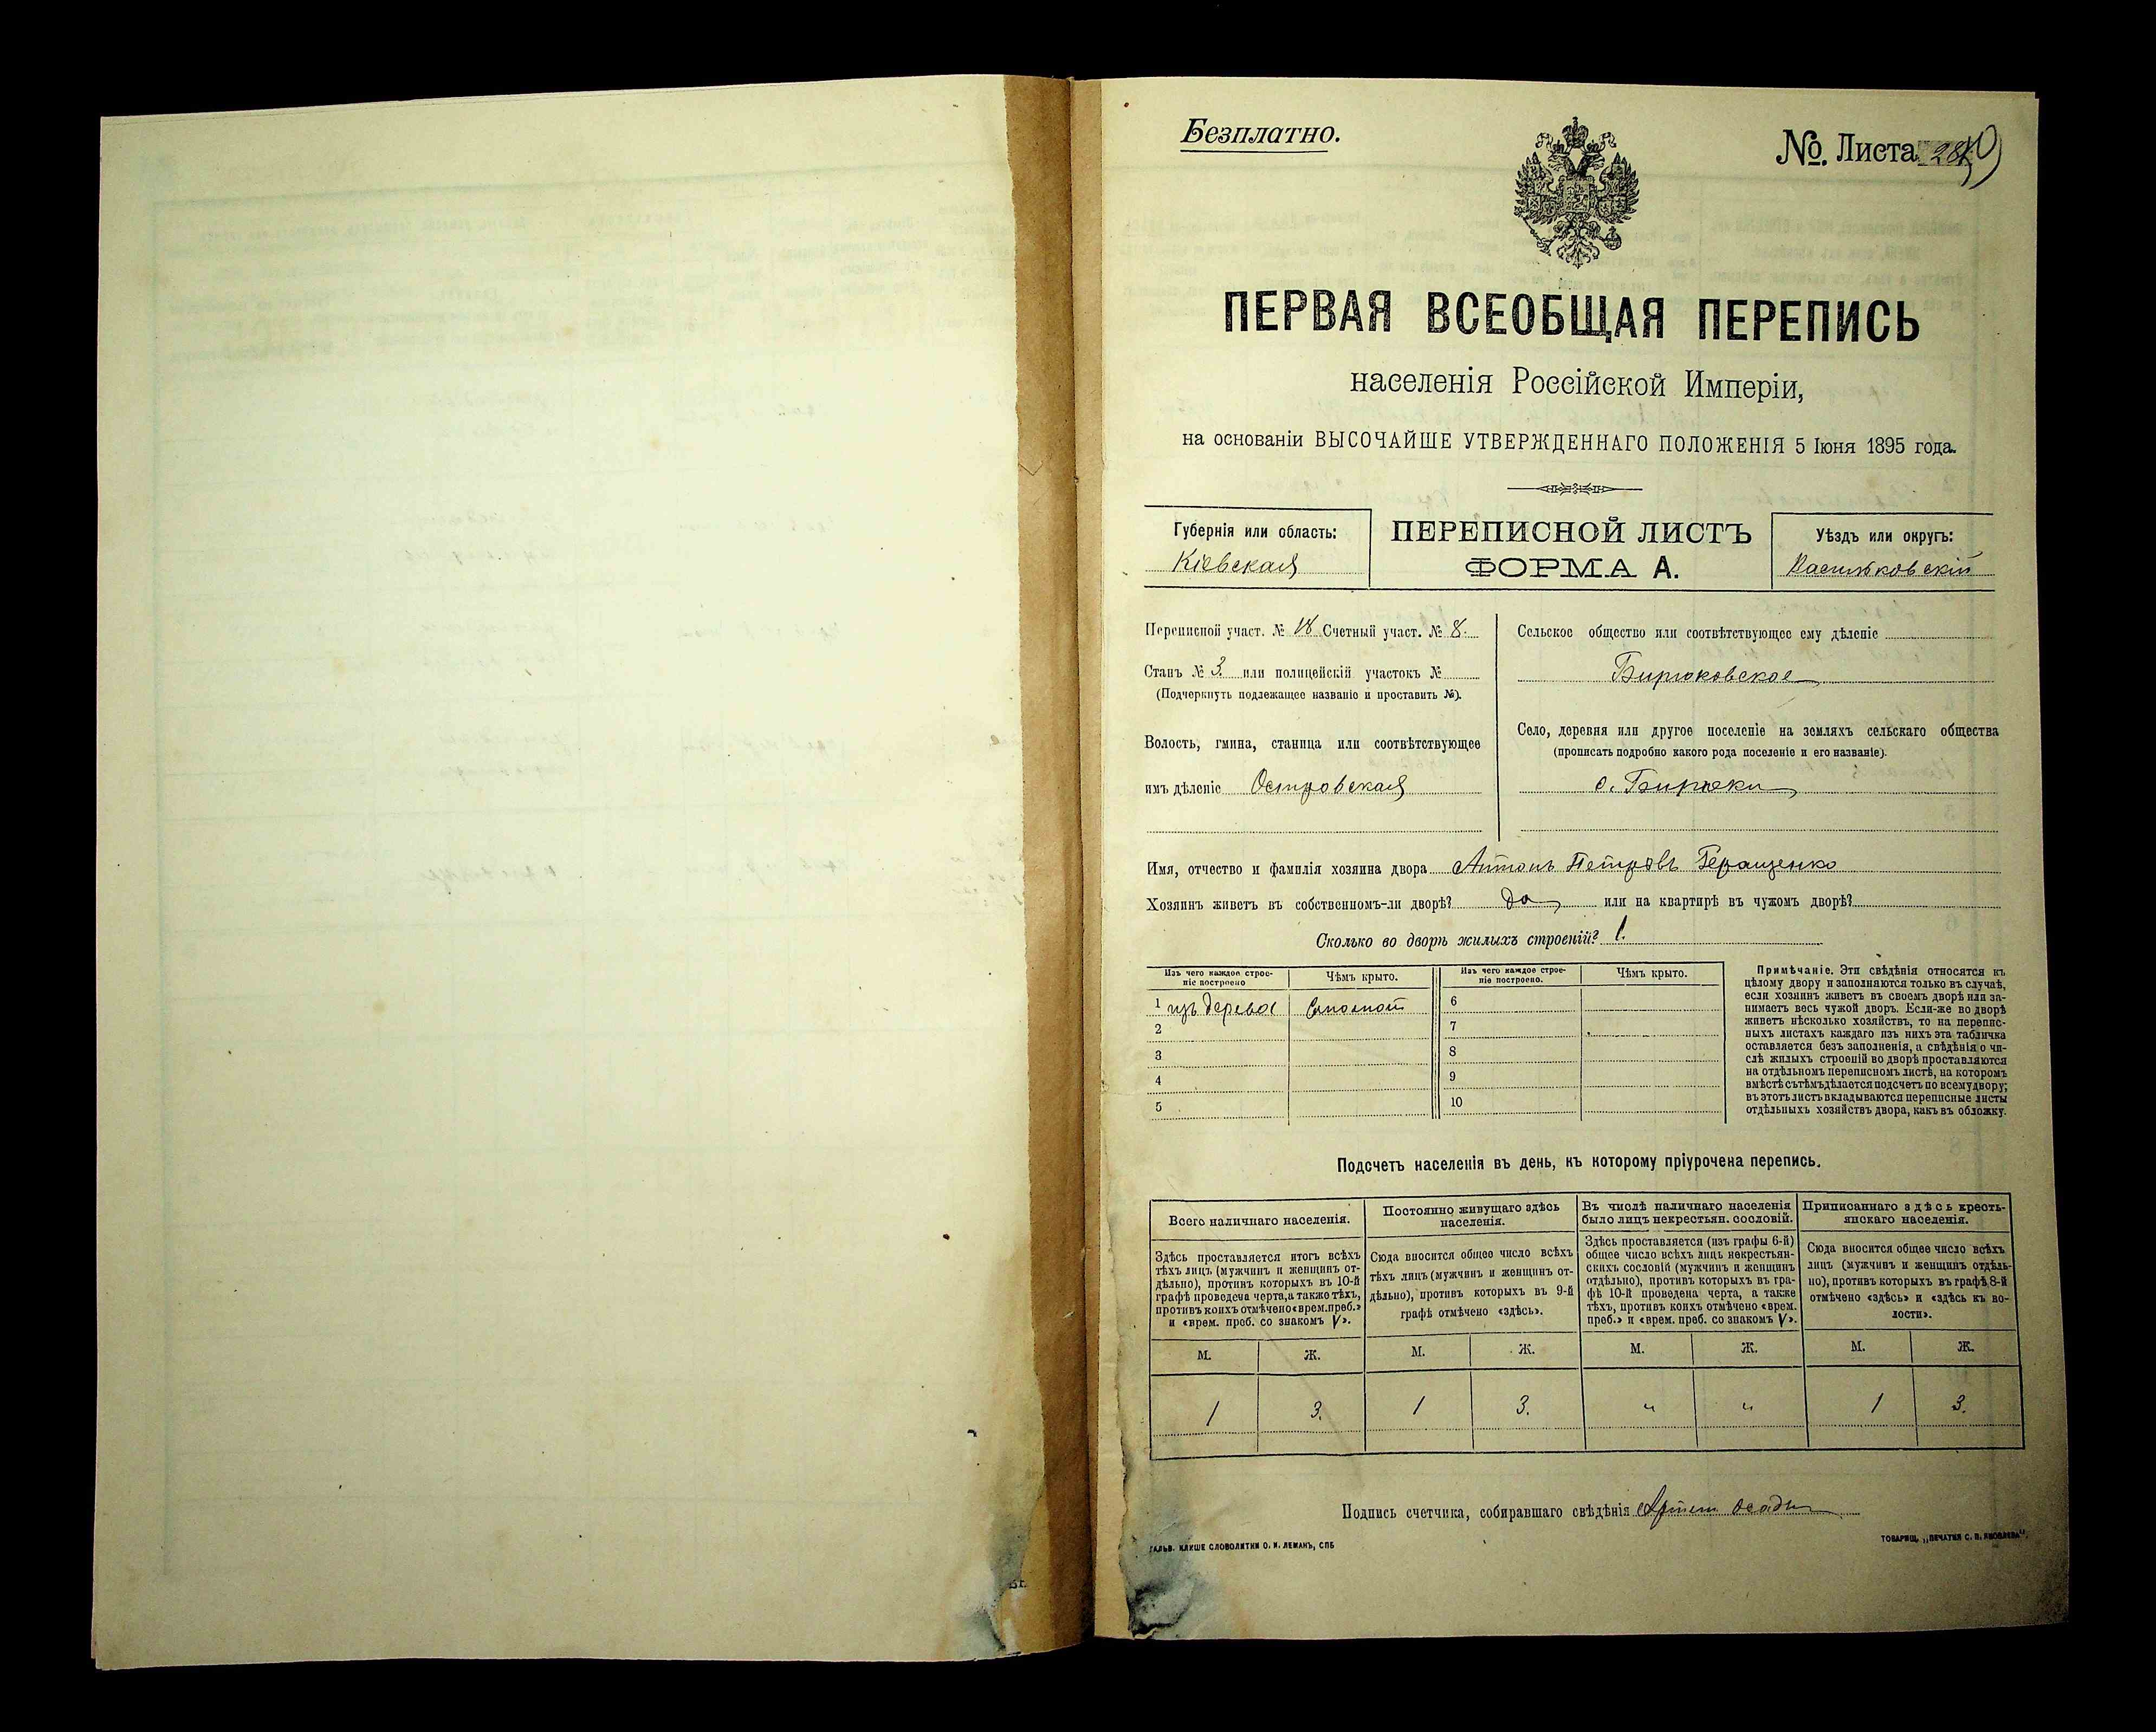 Безплатно.
№. Листа
ПЕРВАЯ ВСЕОБЩАЯ ПЕРЕПИСЬ
населенія Россійской Имперіи,
на основаніи ВЫСОЧАЙШЕ УТВЕРЖДЕННАГО ПОЛОЖЕНІЯ 5 Іюня 1895 года.
Губернія или область:
Кіевская
ПЕРЕПИСНОЙ ЛИСТЪ
ФОРМА А.
Уѣздъ или округъ:
Васильковскій
Переписной участ. № 18 Счетный участ. № 8.
Станъ № 3. или полицейскій участокъ №
(Подчеркнуть подлежащее названіе и проставить №).
Волость, гмина, станица или соотвѣтствующее
имъ дѣленіе Островская
Сельское общество или соотвѣтствующее ему дѣленіе
Бирюковское
Село, деревня или другое поселеніе на земляхъ сельскаго общества
(прописать подробно какого рода поселеніе и его названіе).
с. Бирюки
Имя, отчество и фамилія хозяина двора Антонъ Петровъ Геращенко
Хозяинъ живетъ въ собственномъ-ли дворѣ? да или на квартирѣ въ чужомъ дворѣ?
Сколько во дворѣ жилыхъ строеній? 1.
Изъ чего каждое строе-
ніе построено
Чѣмъ крыто.
Изъ чего каждое строе-
ніе построено.
Чѣмъ крыто.
1 изъ дерева соломой 6
2 7
3 8
4 9
5 10
Примѣчаніе. Эти свѣдѣнія относятся къ
цѣлому двору и заполняются только въ случаѣ,
если хозяинъ живетъ въ своемъ дворѣ или за-
нимаетъ весь чужой дворъ. Если-же во дворѣ
живетъ нѣсколько хозяйствъ, то на перепис-
ныхъ листахъ каждаго изъ нихъ эта табличка
оставляется безъ заполненія, а свѣдѣнія о чи-
слѣ жилыхъ строеній во дворѣ проставляются
на отдѣльномъ переписномъ листѣ, на которомъ
вмѣстѣ съ тѣмъ дѣлается подсчетъ по всему двору;
въ этотъ листъ вкладываются переписные листы
отдѣльныхъ хозяйствъ двора, какъ въ обложку.
Подсчетъ населенія въ день, къ которому пріурочена перепись.
Всего наличнаго населенія.
Здѣсь проставляется итогъ всѣхъ
тѣхъ лицъ (мужчинъ и женщинъ от-
дѣльно), противъ которыхъ въ 10-й
графѣ проведена черта, а также тѣхъ,
противъ коихъ отмѣчено «врем. преб.»
и «врем. преб. со знакомъ V».
Постоянно живущаго здѣсь
населенія.
Сюда вносится общее число всѣхъ
тѣхъ лицъ (мужчинъ и женщинъ от-
дѣльно), противъ которыхъ въ 9-й
графѣ отмѣчено «здѣсь».
Въ числѣ наличнаго населенія
было лицъ некрестьян. сословій.
Здѣсь проставляется (изъ графы 6-й)
общее число всѣхъ лицъ некрестьян-
скихъ сословій (мужчинъ и женщинъ
отдѣльно), противъ которыхъ въ гра-
фѣ 10-й проведена черта, а также
тѣхъ, противъ коихъ отмѣчено «врем.
преб.» и «врем. преб. со знакомъ V».
Приписаннаго здѣсь кресть-
янскаго населенія.
Сюда вносится общее число всѣхъ
лицъ (мужчинъ и женщинъ отдѣль-
но), противъ которыхъ въ графѣ 8-й
отмѣчено «здѣсь» и «здѣсь къ во-
лости».
М. Ж. М. Ж. М. Ж. М. Ж.
1 3. 1 3. " " 1 3.
Подпись счетчика, собиравшаго свѣдѣнія
ГАЛЬВ. КЛИШЕ СЛОВОЛИТНИ О. И. ЛЕМАНЪ, СПБ
ТОВАРИЩ. „ПЕЧАТНЯ С. П. ЯКОВЛЕВА".